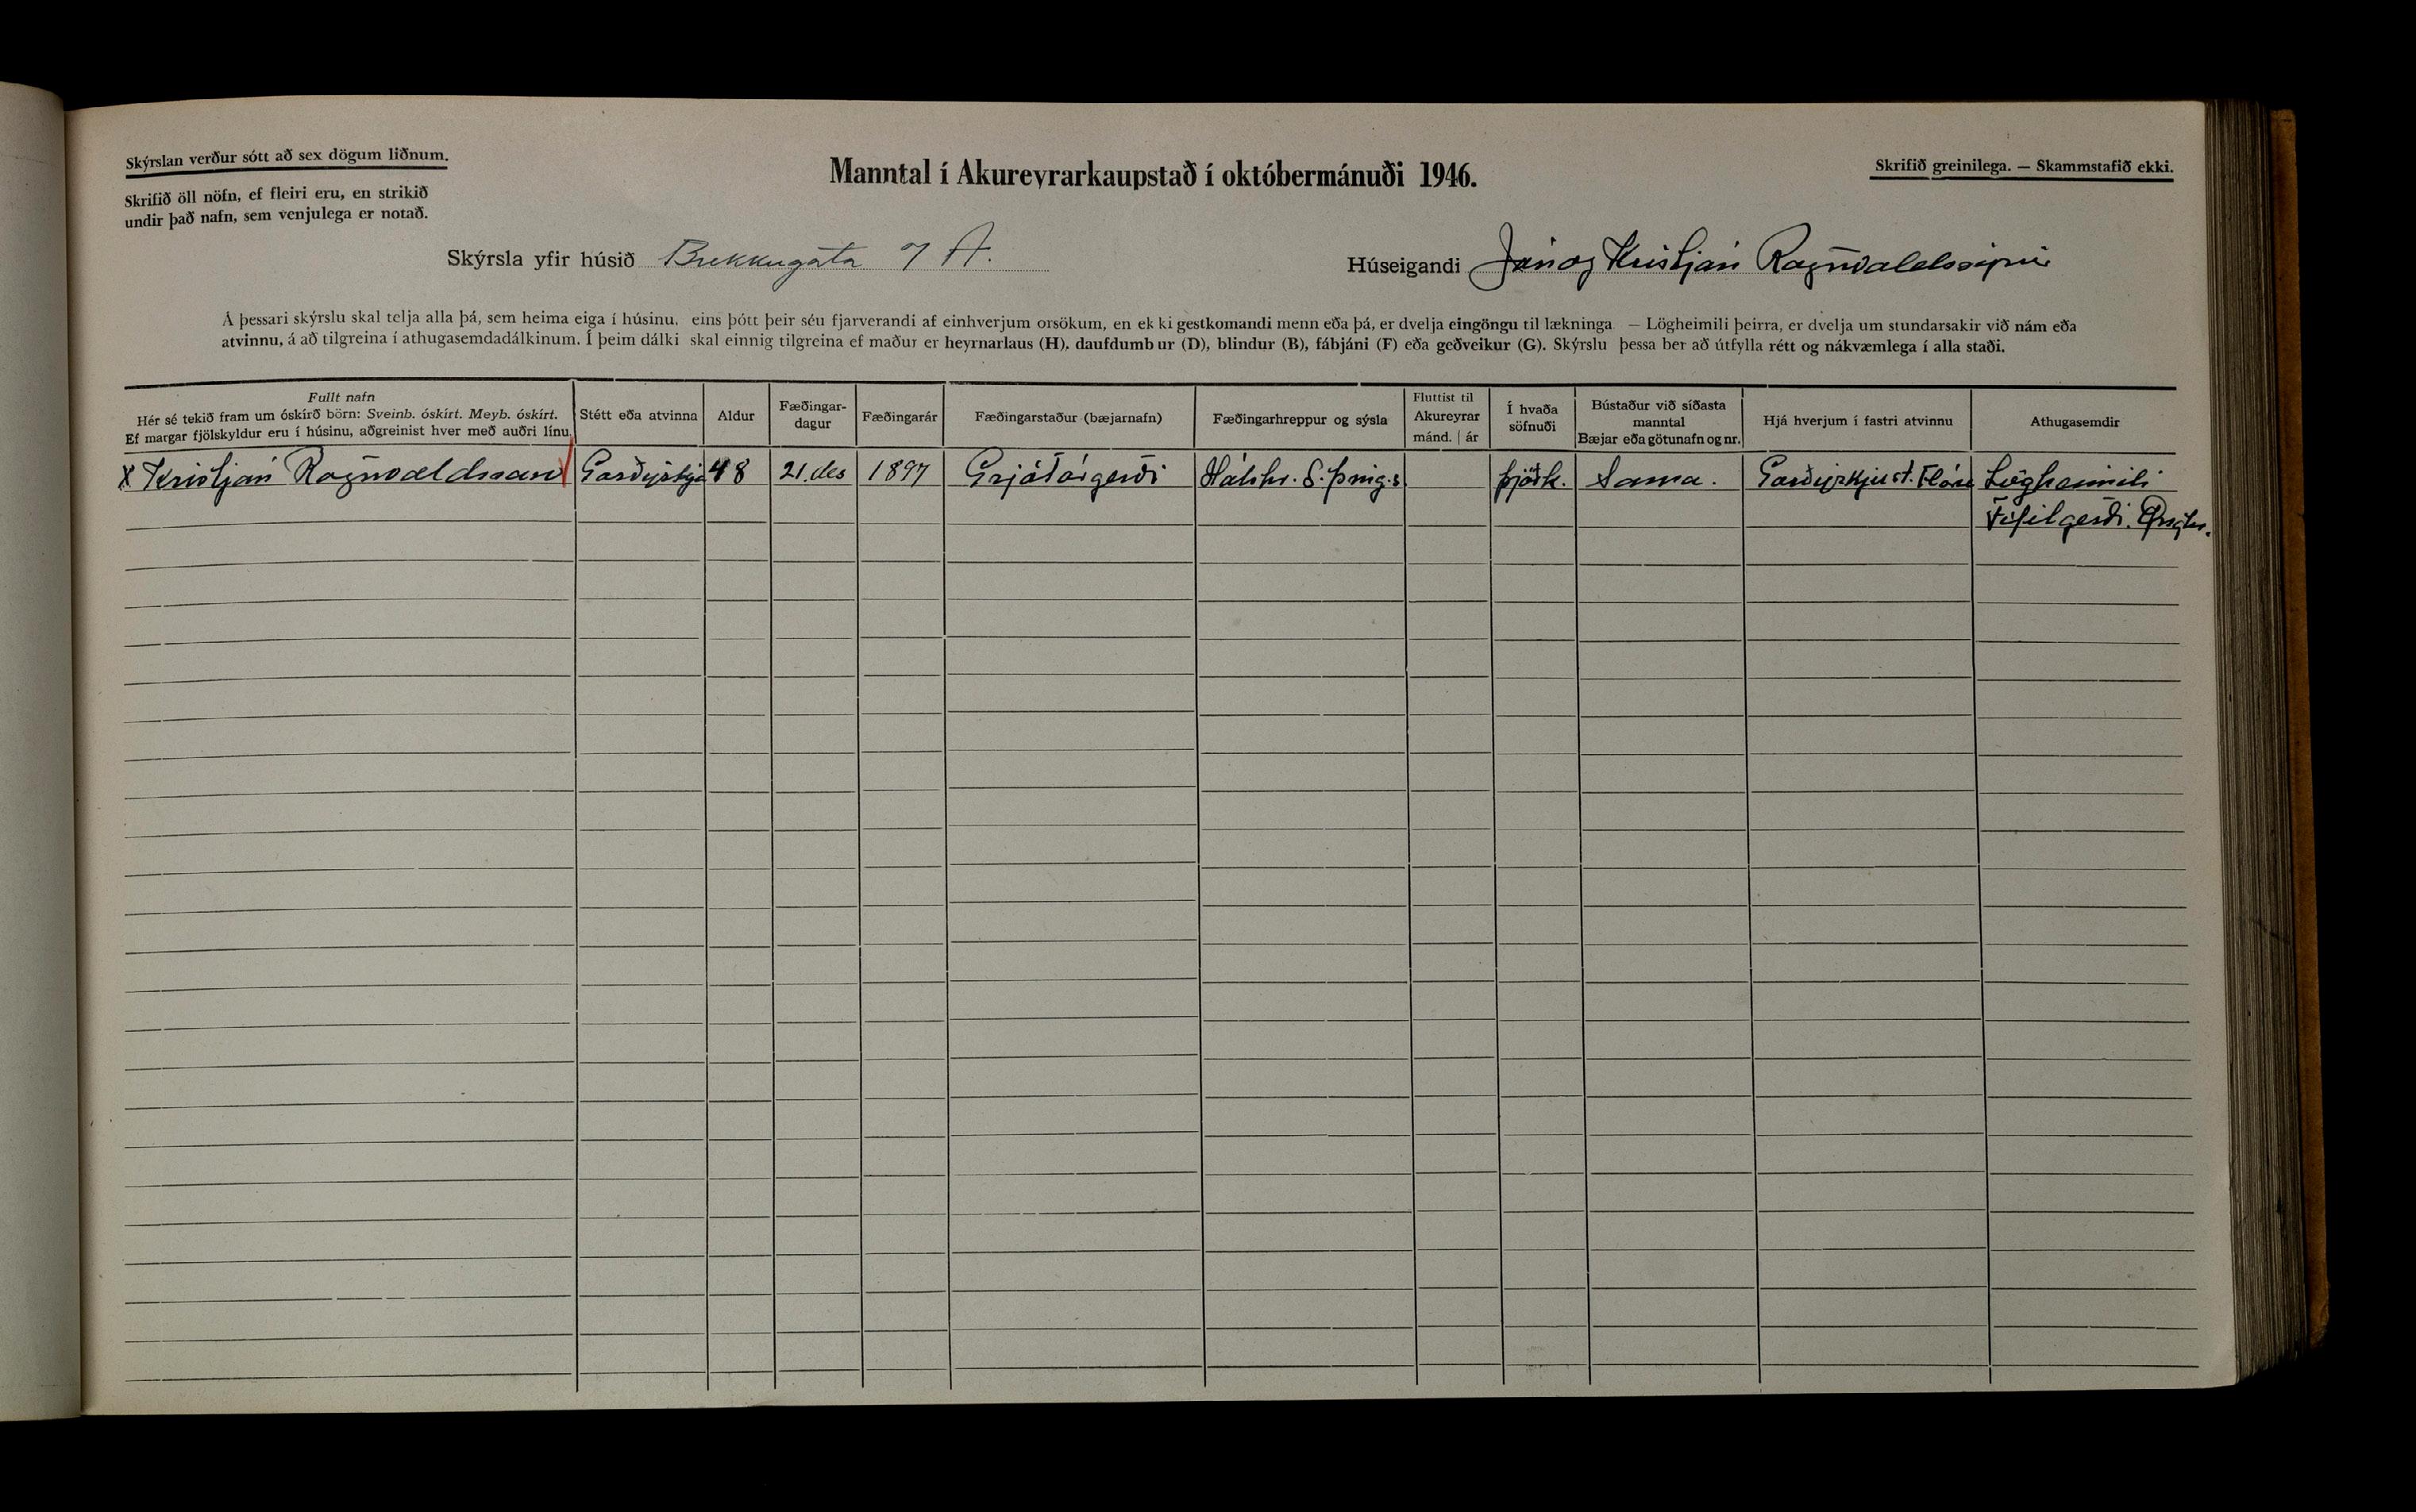 Skýrslan verður sótt að sex dögum liðnum.
Skrifið öll nöfn, ef fleiri eru, en strikið
undir það nafn, sem venjulega er notað.
Manntal í Akureyrarkaupstað í októbermánuði 1946.
Skrifið greinilega. — Skammstafið ekki.
Skýrsla yfir húsið Brekkugata 7 A.
Húseigandi Jón og Kristján Rögnvaldssynir
Á þessari skýrslu skal telja alla þá, sem heima eiga í húsinu, eins þótt þeir séu fjarverandi af einhverjum orsökum, en ekki gestkomandi menn eða þá, er dvelja eingöngu til lækninga — Lögheimili þeirra, er dvelja um stundarsakir við nám eða
atvinnu, á að tilgreina í athugasemdadálkinum. Í þeim dálki skal einnig tilgreina ef maður er heyrnarlaus (H), daufdumbur (D), blindur (B), fábjáni (F) eða geðveikur (G). Skýrslu þessa ber að útfylla rétt og nákvæmlega í alla staði.
Fullt nafn
Hér sé tekið fram um óskírð börn: Sveinb. óskírt. Meyb. óskírt.
Ef margar fjölskyldur eru í húsinu, aðgreinist hver með auðri línu.
Stétt eða atvinna
Aldur
Fæðingar-
dagur
Fæðingarár
Fæðingarstaður (bæjarnafn)
Fæðingarhreppur og sýsla
Fluttist til
Akureyrar
mánd. | ár
Í hvaða
söfnuði
Bústaður við síðasta
manntal
Bæjar eða götunafn og nr.
Hjá hverjum í fastri atvinnu
Athugasemdir
x Kristján Rögnvaldsson Garðyrkju 48 21. des 1897 Grjótárgerði Hálshr. S. Þing.s þjóðk. Sama. Garðyrkjust. Flóra Lögheimili
Fífilgerði. Öngls.